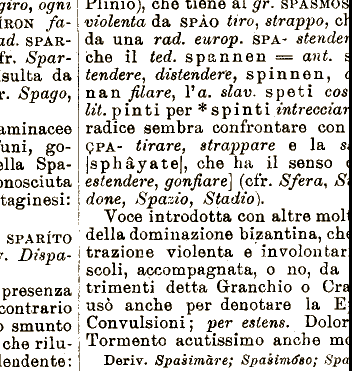 giro, ogni
ÍRON fa-
ad. SPAR-
fr. Spar-
sulta da
r. Spago,
aminacee
funi, go-
ella Spa-
onosciuta
taginesi:
SPARÍTO
v. Dispa-
presenza
contrario
o smunto
che rilu-
lendente:
Plinio), che tiene al gr. SPASMOS
violenta da SPÁO tiro, strappo, ch
da una rad. europ. SPA- stender
che il ted. spannen = ant. s
tendere, distendere, spinnen,
nan filare, l'a. slav. speti cos
lit. pinti per * spinti intrecciar
radice sembra confrontare con
ÇPA- tirare, strappare e la s
|sphâyate|, che ha il senso
estendere, gonfiare] (cfr. Sfera, S
done, Spazio, Stadio).
Voce introdotta con altre molt
della dominazione bizantina, che
trazione violenta e involontar
scoli, accompagnata, o no, da
trimenti detta Granchio o Cra
usò anche per denotare la E
Convulsioni; per estens. Dolor
Tormento acutissimo anche mo
Deriv. Spasimàre; Spasimóso; Spa